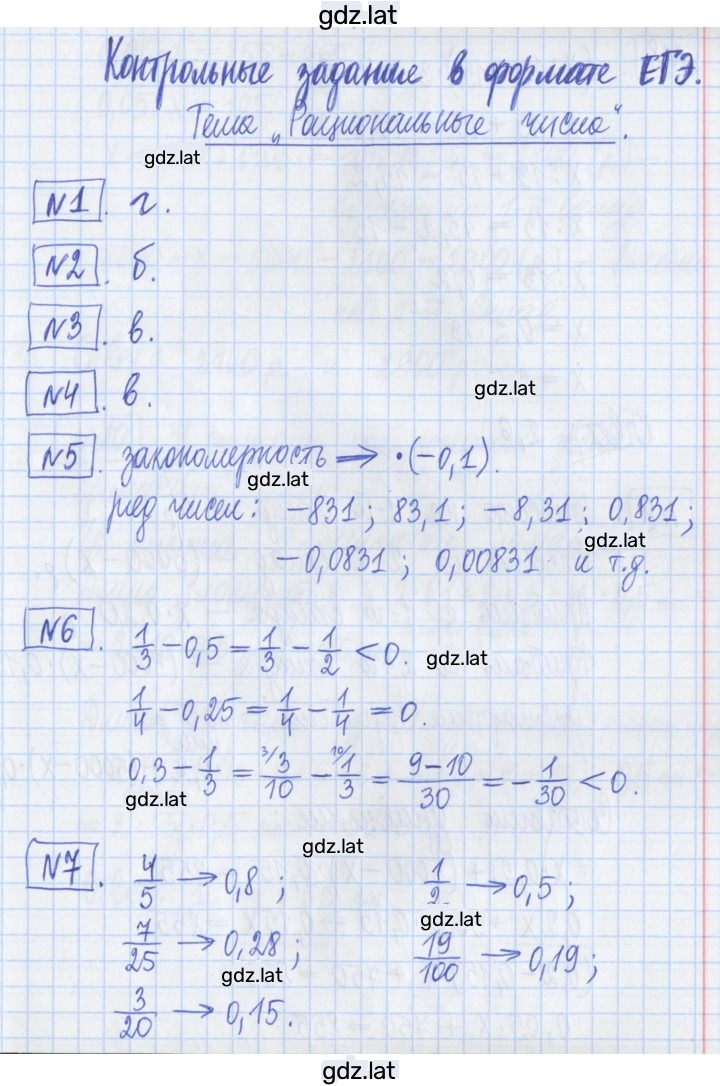 gdz.lat
Контрольные задания в формате ЕГЭ.
Тема „Рациональные числа“.
gdz.lat
№1. г.
№2. б.
№3. в.
№4. в.
gdz.lat
№5. закономерность ⟹ ·(−0,1).
gdz.lat
ряд чисел: −831; 83,1; −8,31; 0,831;
gdz.lat
−0,0831; 0,00831 и т.д.
№6. 1/3 − 0,5 = 1/3 − 1/2 < 0.
gdz.lat
1/4 − 0,25 = 1/4 − 1/4 = 0.
0,3 − 1/3 = ³⁾3/10 − ¹⁰⁾1/3 = (9−10)/30 = −1/30 < 0.
gdz.lat
gdz.lat
№7. 4/5 → 0,8; 1/2 → 0,5;
gdz.lat
7/25 → 0,28; 19/100 → 0,19;
gdz.lat
3/20 → 0,15.
gdz.lat